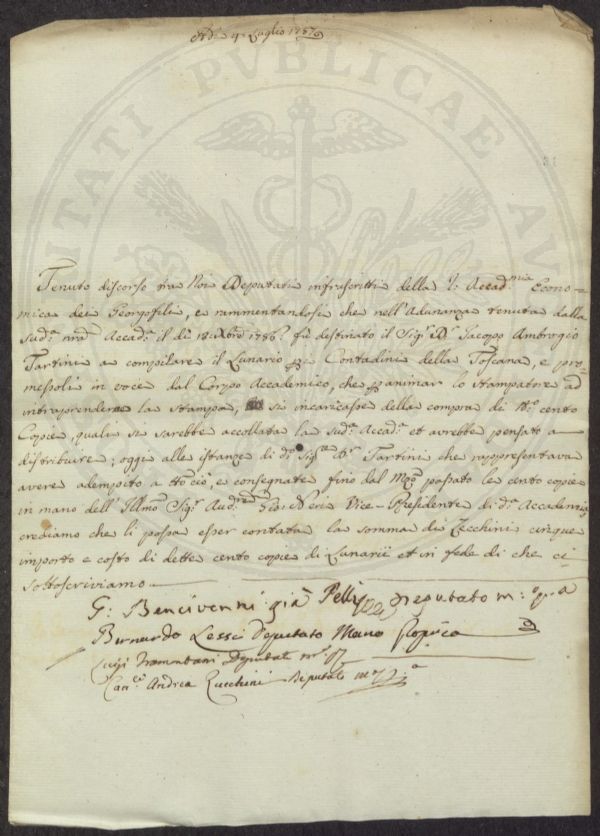 Ad. 4. Luglio 1787
PVBLICAE
Tenuto discorso tra Noi Deputati infrascritti della R: Accad.mia Econo-
mica dei Georgofili, e rammentandosi che nell'Adunanza tenuta dalla
Sud.a nra Accad.a il dì 1786. fù destinato il Sig.r D.r Jacopo Ambrogio
Tartini a compilare il Lunario pei Contadini della Toscana, e pro-
messoli in voce dal Corpo Accademico, che p animar lo Stampatore ad
intraprenderne la stampa, si incaricasse della compra di N.o cento
Copie, quali si sarebbe accollata la Sud.a Accad.a et avrebbe pensato a
distribuire; oggi alle istanze di d.o Sig.re D.r Tartini che rappresentava
avere adempito a tto ciò, e consegnate fino dal Mgg.o passato le cento copie
in mano dell'Illmo Sig.r Aud.re Gio: Neri Vice-Presidente di d.a Accademia
crediamo che li possa esser contata la somma di Zecchini cinque
importo e costo di dette cento copie di Lunarii et in fede di che ci
sottoscriviamo
G: Bencivenni già Pelli Deputato m: pp.a
Bernardo Lessi Deputato Mano Propria
Luigi Tramontani Deputat. m.o pp.
Can.co Andrea Zucchini Deputato